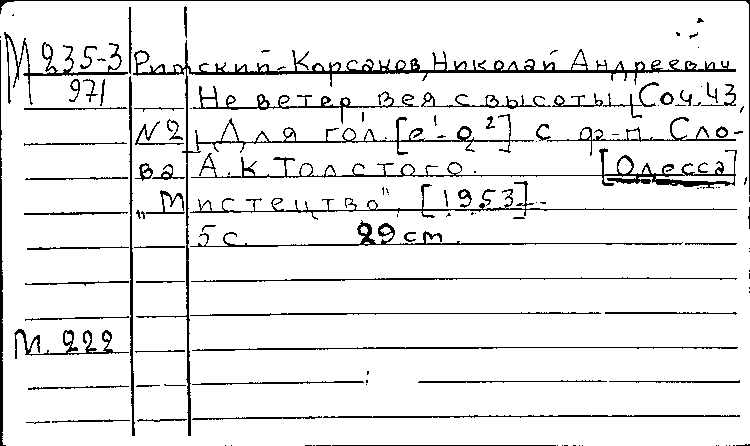 М 235-3 Римский-Корсаков, Николай Андреевич
971 Не ветер, вея с высоты [Соч. 43,
№2]. Для гол. [e¹-g²] с ф-п. Сло-
ва А.К Толстого. [Одесса],
„Мистецтво", [1953]
5 с. 29 cm.
М. 222